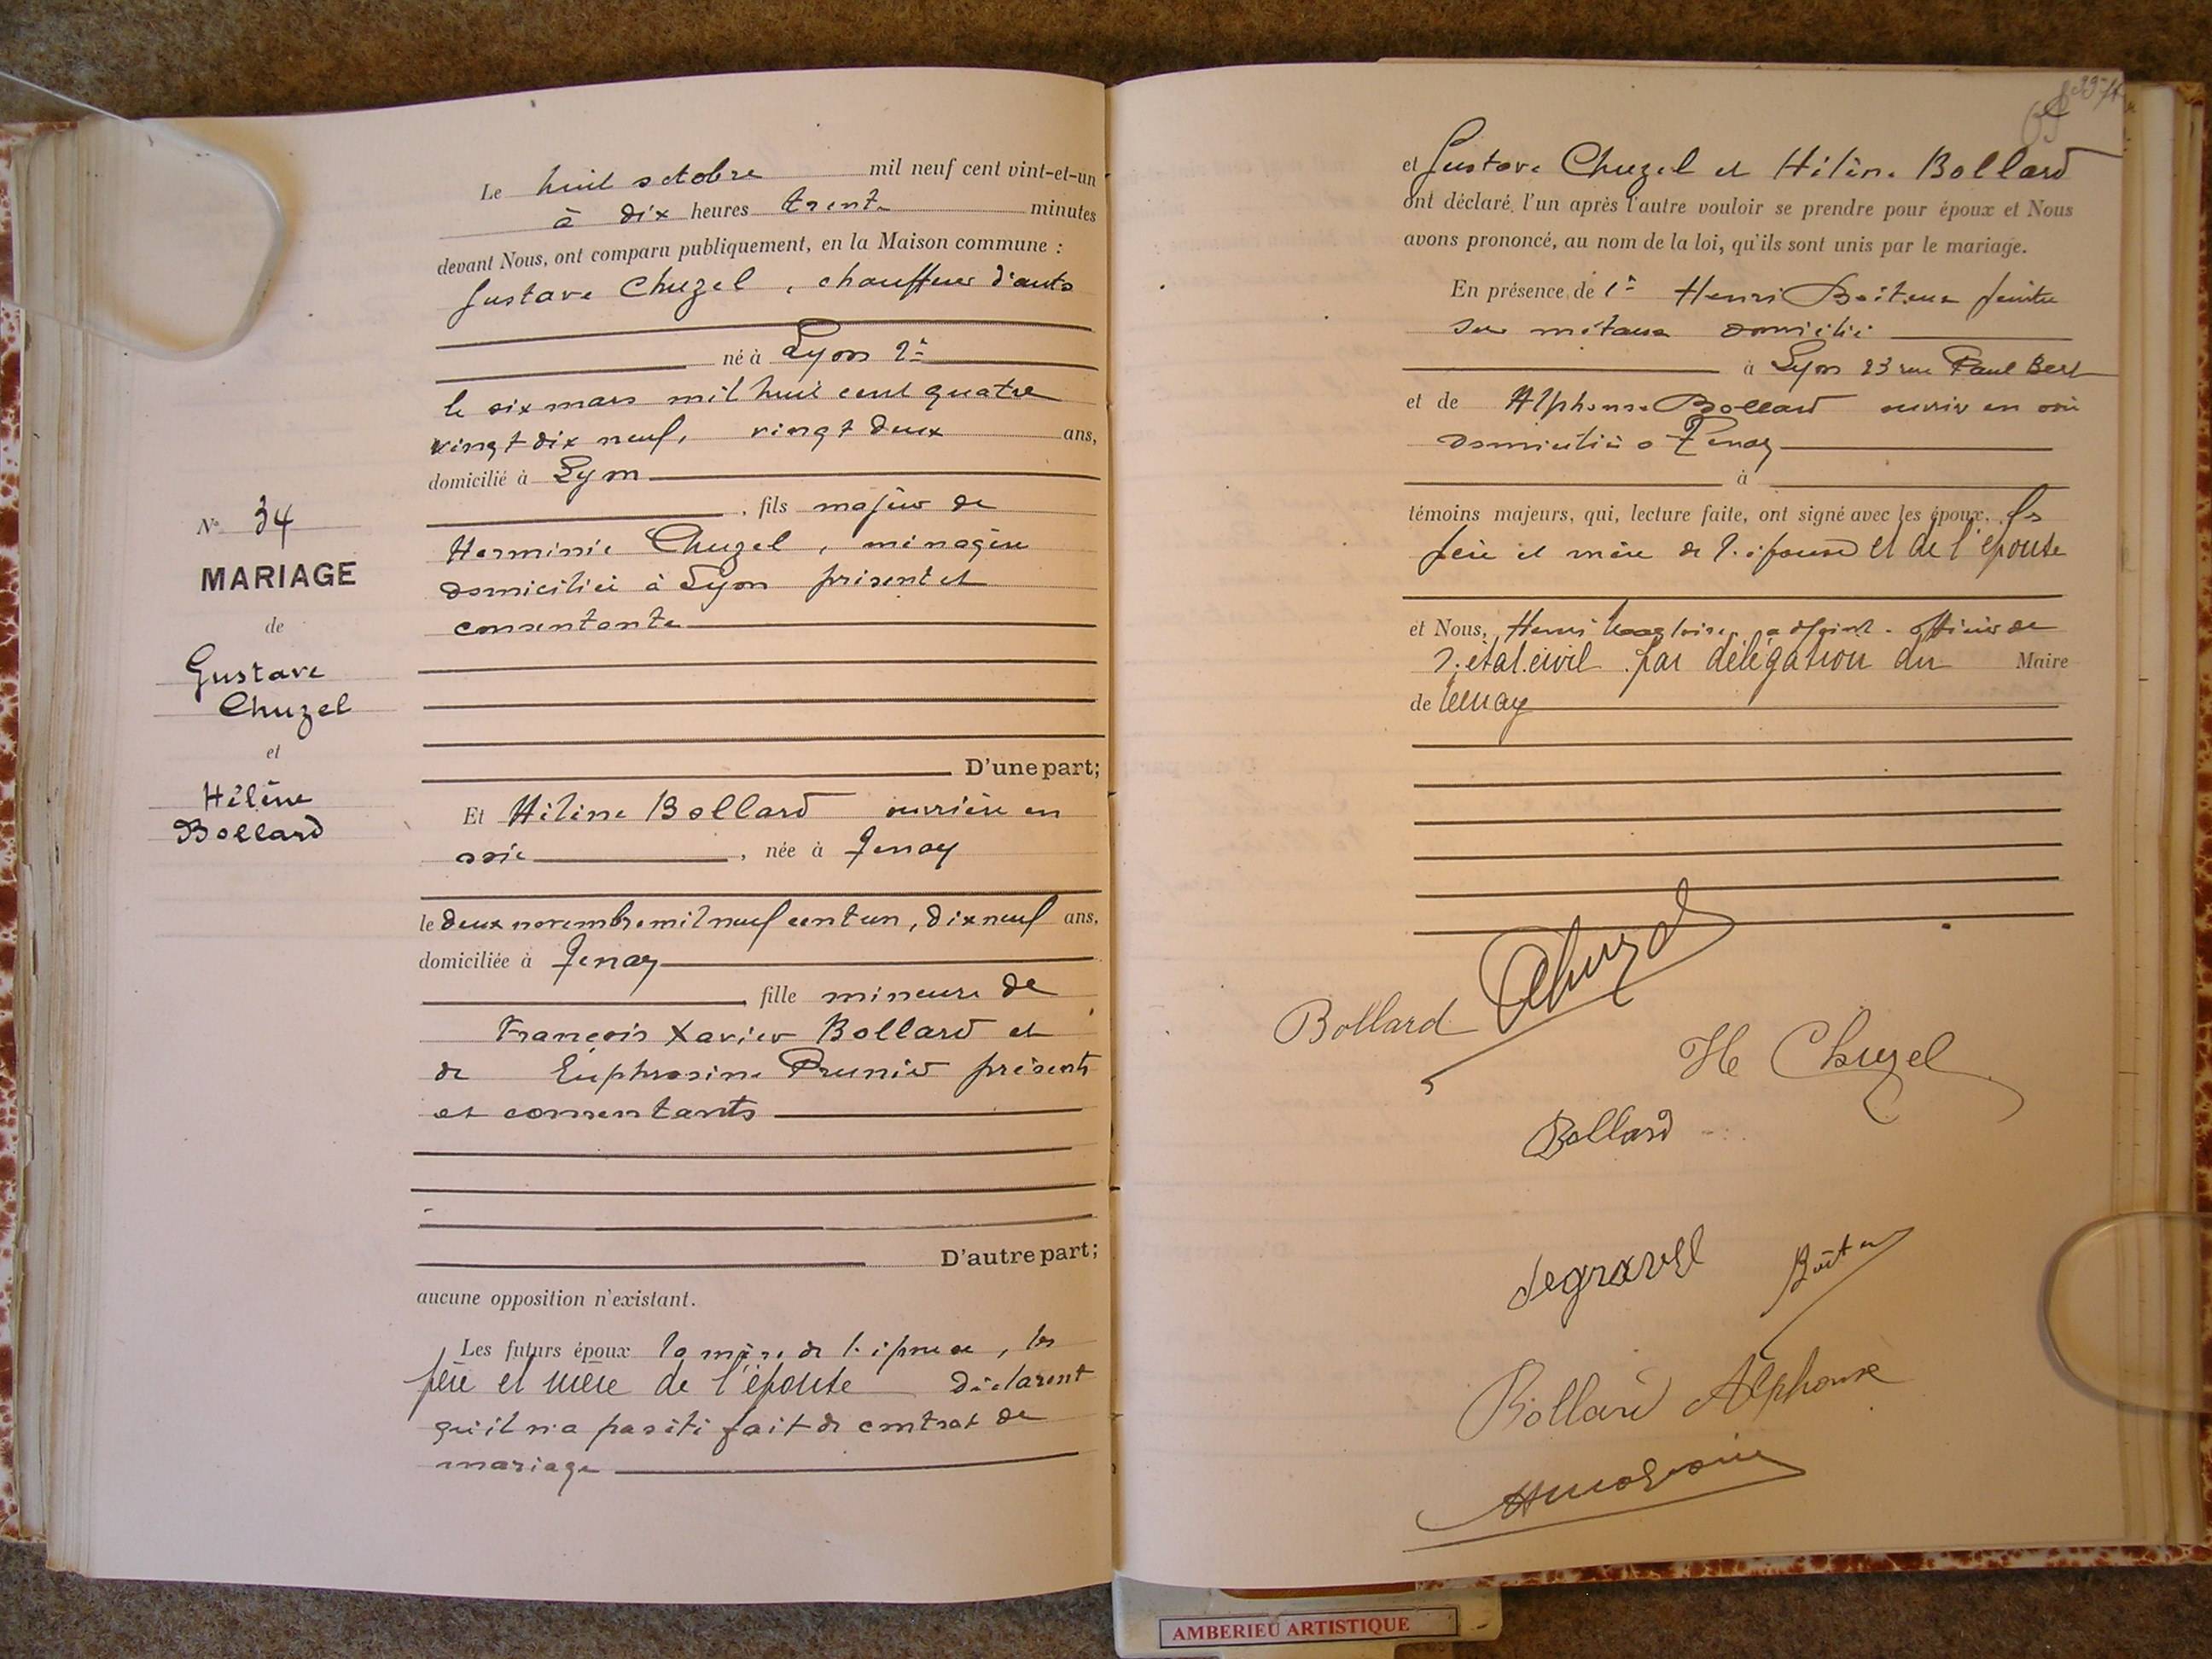 Le huit octobre mil neuf cent vint-et-un
à dix heures trente minutes
devant Nous, ont comparu publiquement, en la Maison commune :
Gustave Chuzel, chauffeur d'auto
né à Lyon 2e
le six mars mil huit cent quatre
vingt dix neuf, vingt deux ans,
domicilié à Lyon
, fils majeur de
Herminie Chuzel, ménagère
domiciliée à Lyon présent et
consentante
D'une part;
Et Hélène Bollard ouvrière en
soie, née à Tenay
le deux novembre mil neuf cent un, dix neuf ans,
domiciliée à Tenay
fille mineure de
François Xavier Bollard et
de Euphrosine Prunier présents
et consentants
D'autre part;
aucune opposition n'existant.
Les futurs époux la mère de l'époux, les
père et mère de l'épouse déclarent
qu'il n'a pas été fait de contrat de
mariage
No 34
MARIAGE
de
Gustave
Chuzel
et
Hélène
Bollard
et Gustave Chuzel et Hélène Bollard
ont déclaré, l'un après l'autre vouloir se prendre pour époux et Nous
avons prononcé, au nom de la loi, qu'ils sont unis par le mariage.
En présence de 1° Henri peintre
sur métaux domicilié
à Lyon 23 rue Paul Bert
et de Alphonse Bollard ouvrier en soie
domicilié à Tenay
à
témoins majeurs, qui, lecture faite, ont signé avec les époux, les
père et mère de l'époux et de l'épouse
et Nous, Henri adjoint officier de
l'état civil par délégation du Maire
de Tenay
Chuzel
Bollard
H Chuzel
Bollard
Bollard Alphonse
AMBERIEU ARTISTIQUE